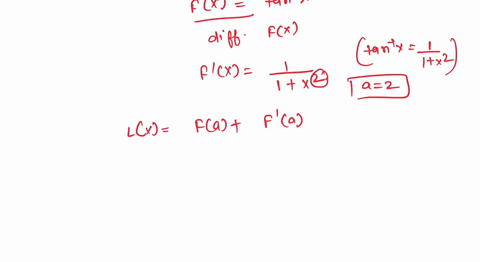 F(x) = tan⁻¹x
diff. F(x)
F'(x) = 1/(1+x²)
(tan⁻¹x = 1/(1+x²))
a=2
L(x) = F(a) + F'(a)